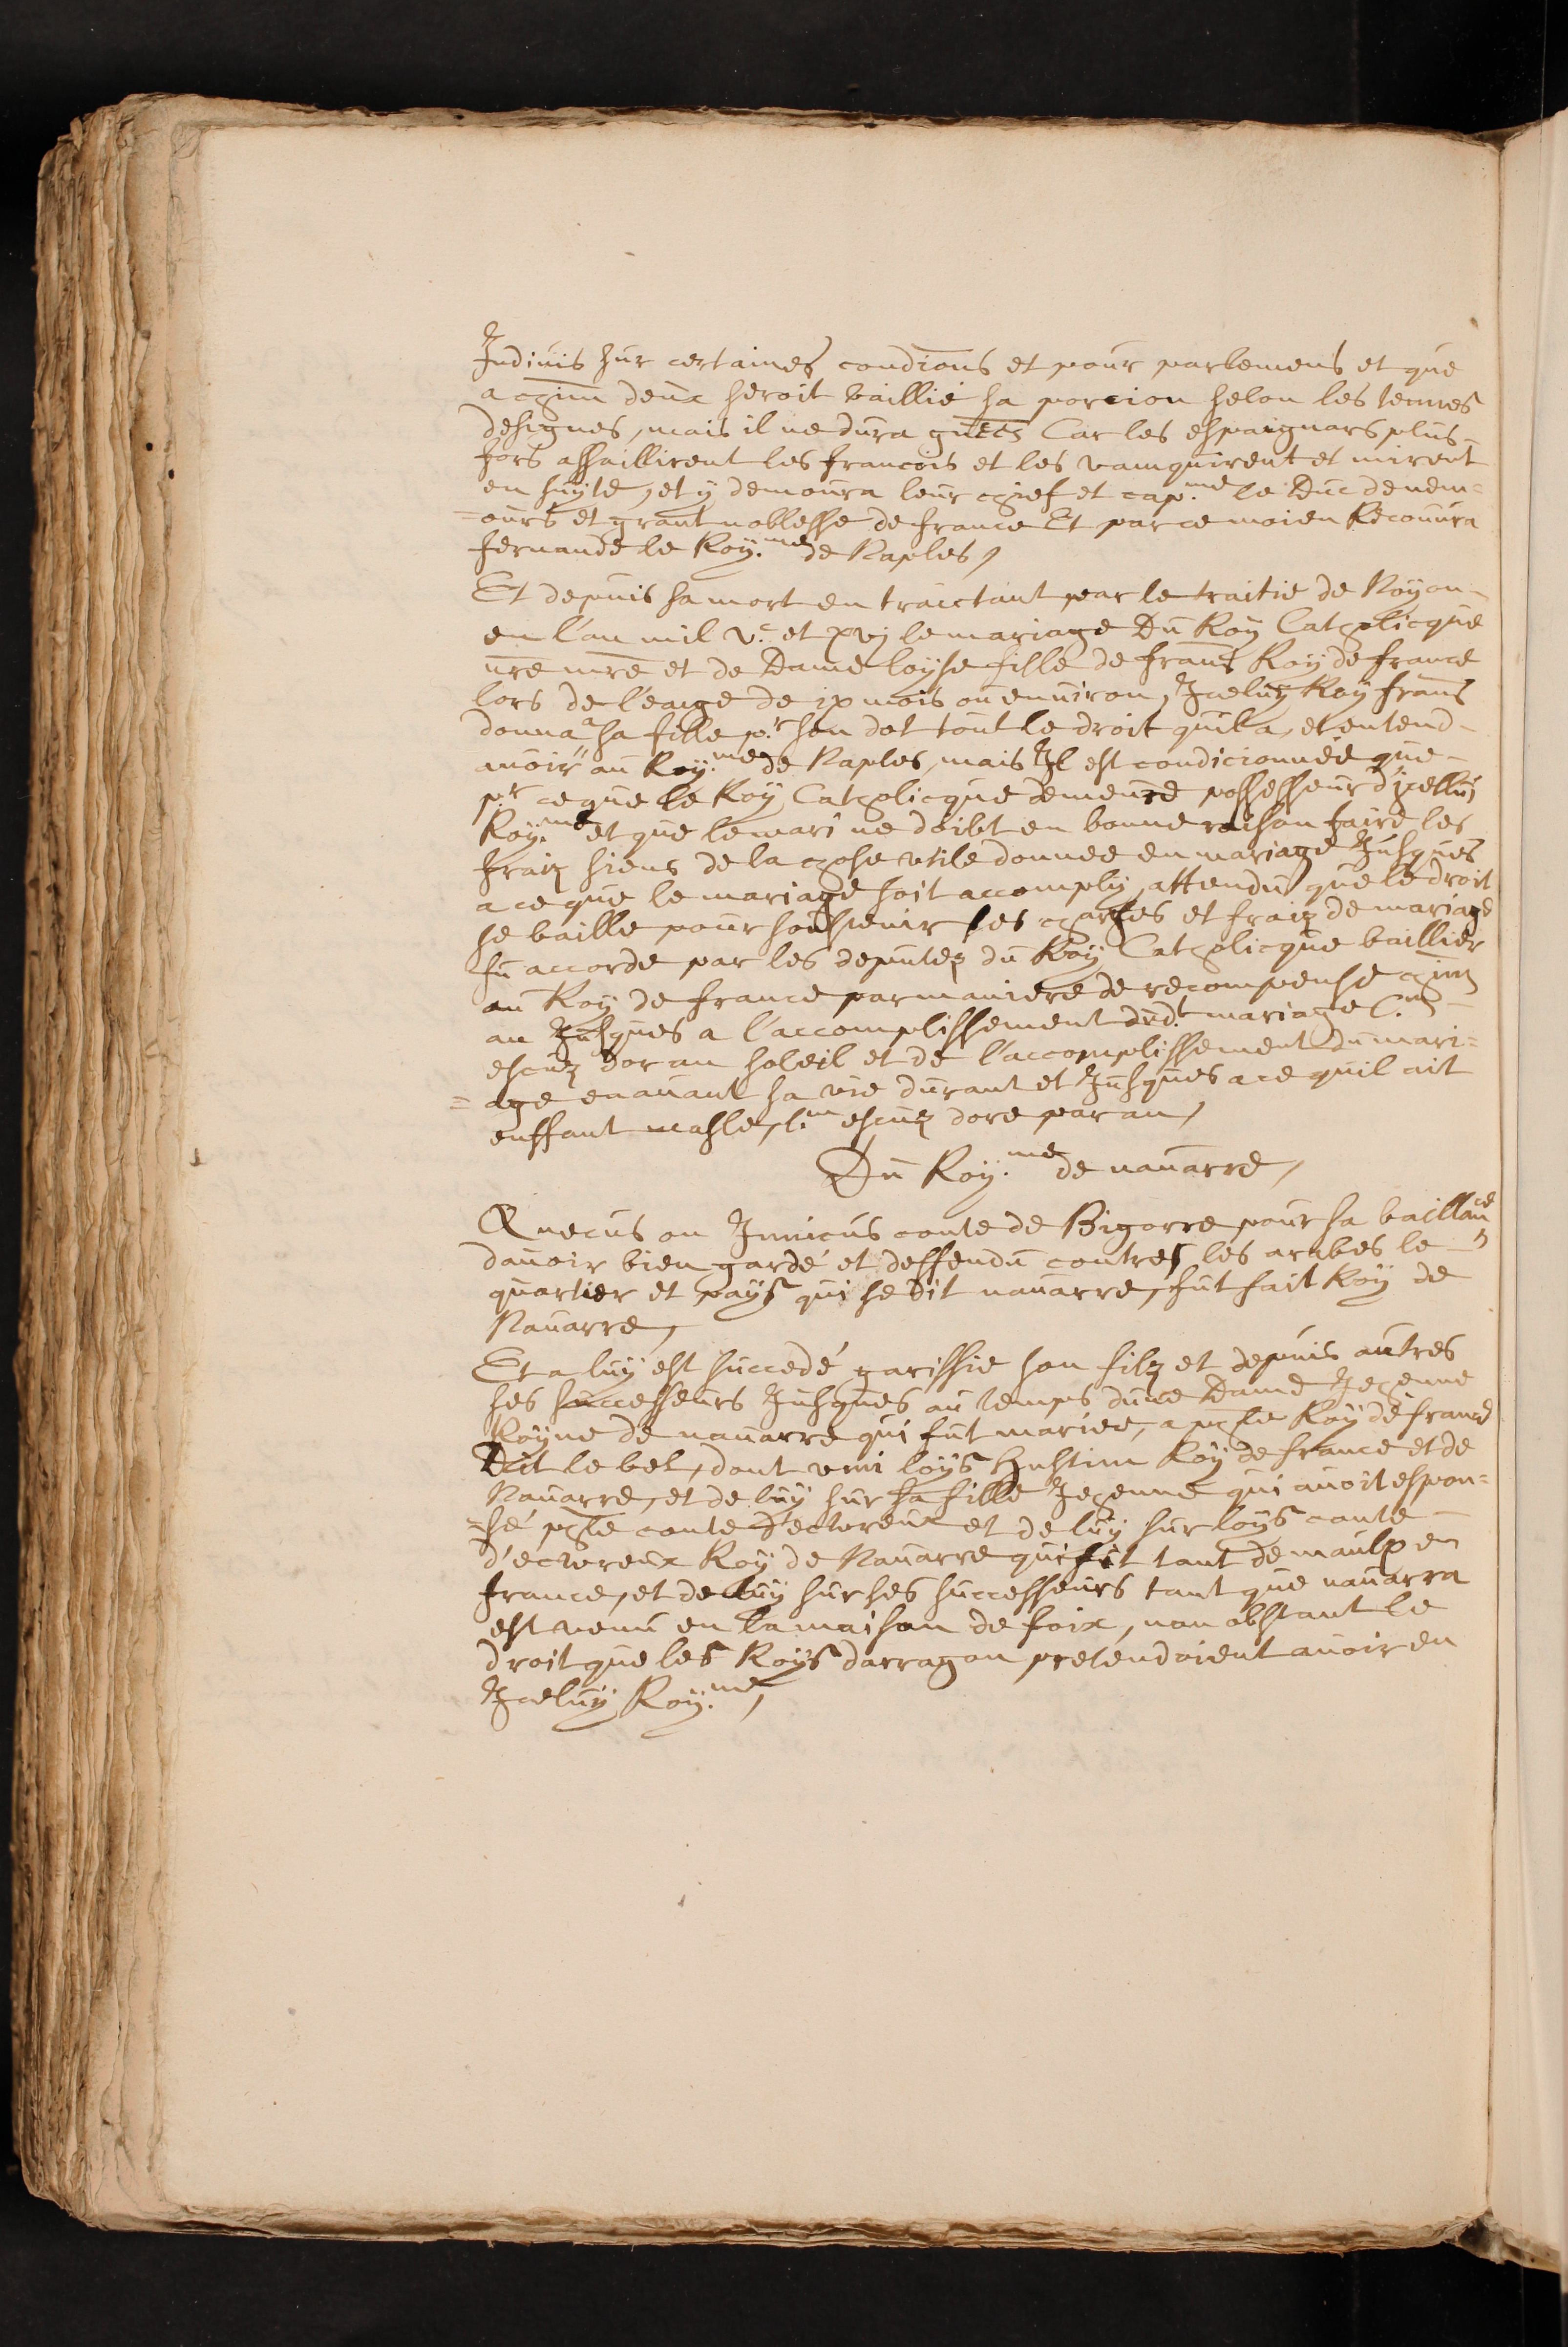 Indiuis sur certaines condicions et pour parlemens et que
a chũn deux seroit baillié sa porcion selon les termes
designes, mais il ne dura gũes Car les espaignars plus
fors assaillirent les francois et les vainquirent et mirent
en fuyte, et y demoura leur chief et cap.ne le Duc de nem=
=ours et grant noblesse de france Et par ce moien Recouura
fernande le Roy.me de Naples,
Et depuis sa mort en traictant par le traitie de Noyon
en l'an mil vc. et xvj le mariage Du Roy Catholicque
ñre mr̃e et de Dame loyse fille de frans Roy de france
lors de l'eage de ix mois ou enuiron, Iceluy Roy frans
donna a sa fille p.r son dot tout le droit quil a, et entend
auoir au Roy.me de Naples, mais Il est condicionnée que
p.r ce que le Roy Catholicque demeure possesseur d'icelluj
Roy.me et que le mari ne doibt en bonne raison faire les
fraiz siens de la chose vtile donnee en mariage Jusques
a ce que le mariage soit accomply, attendu que le droit
se baille pour soustenir les charges et fraiz de mariage
fu accorde par les deputez du Roy Catholicque baillier
au Roy de france par maniere de recompense chũn
an Jusques a l'accomplissement dud.t mariage C.m
escuz dor au soleil et de l'accomplissement du mari=
=age enauant sa vie durant et Jusques a ce quil ait
enffant masle, l.m escuz dore par an,
Du Roy.me de nauarre,
Enecus ou Innicus conte de Bigorre pour sa baillance
dauoir bien gardé et deffendu contres les arabes le
quartier et pays qui se dit nauarre, fut fait Roy de
Nauarre,
Et a luy est succedé garissie son filz et depuis autres
ses successeurs Jusques au temps dune Dame Jehenne
Royne de nauarre qui fut mariee, a ph̃e Roy de france
Dit le bel, dont vini loys Hustim Roy de france et de
Nauarre, et de luy sur sa fille Jehenne qui auoit espou=
=sé ph̃e conte d'ectoreux et de luy sur loys conte
d'ectoreux Roy de Nauarre qui fit tant de maulx en
france, et de luy sur ses successeurs tant que nauarra
est venu en la maison de foix, non obstant le
droit que les Roys darragon pretendoient auoir en
Iceluy Roy.me,